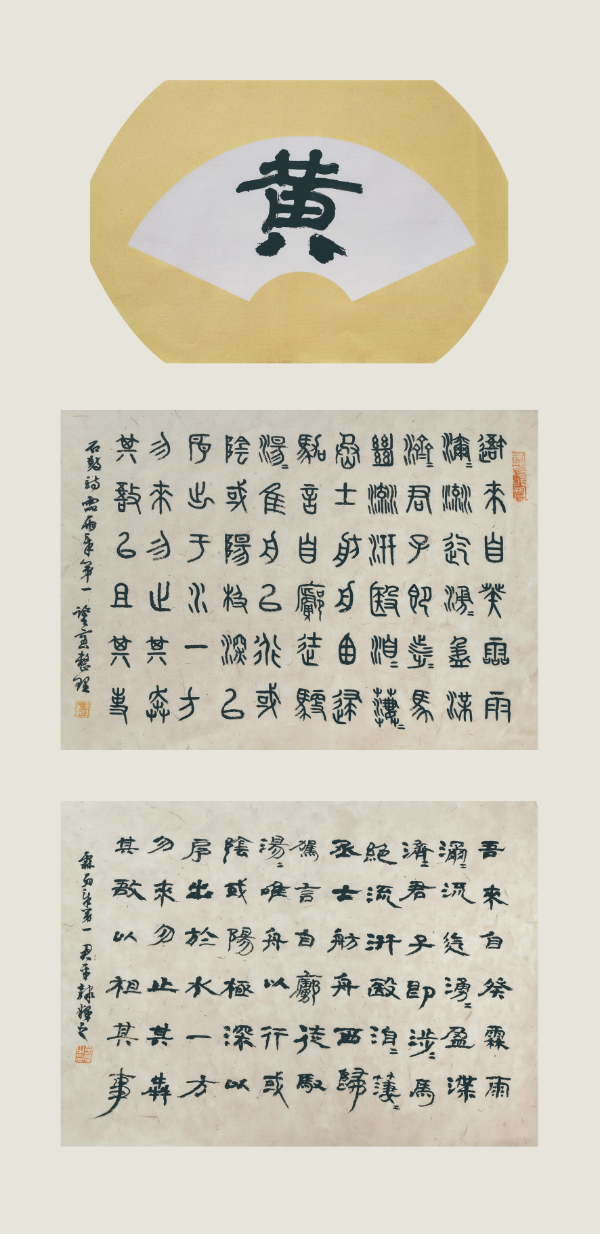 黄
來自癸霝雨
流迄湧〻盈渫
濟〻君子即涉〻馬
流汧殹洎〻
士舫舟西歸
言自廓徒馭
湯〻隹舟以行或
陰或陽極深以
于水一方
勿來勿止其奔
其敔以且其事
石鼓詩 霝雨章第一
吾來自癸霖雨
瀰〻流迄湧〻盈渫
濟〻君子即涉〻馬
絕流汧殹洎〻萋〻
丞士舫舟西歸
駕言自廓徒馭
湯〻唯舟以行或
陰或陽極深以
戶出於水一方
勿來勿止其奔
其敔以祖其事
霖雨章第一 君平隸釋之